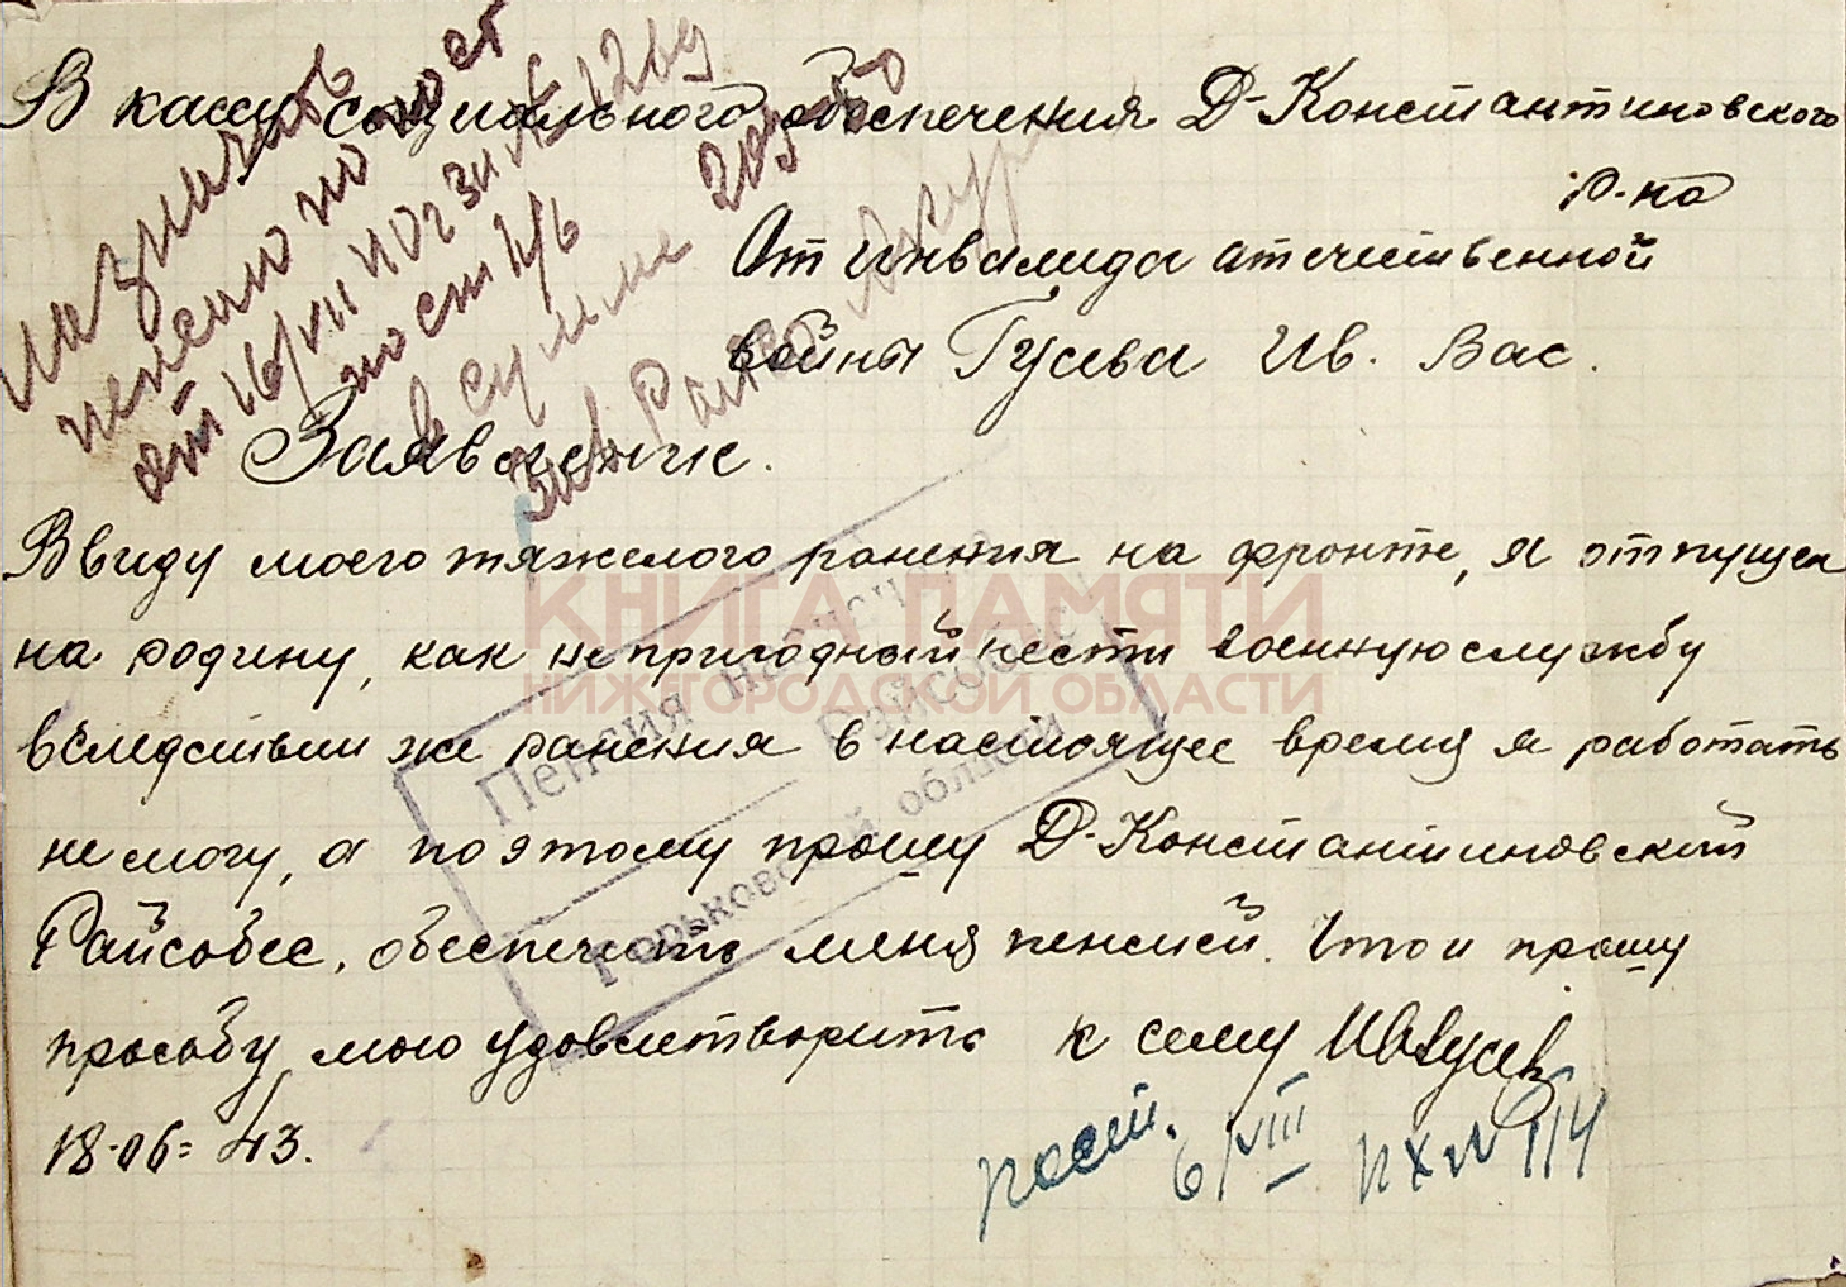 В кассу социального обеспечения Д-Константиновского
р-на
От инвалида отечественной
войны Гусева Ив. Вас.
Заявление.
Ввиду моего тяжелого ранения на фронте, я отпущен
на родину, как непригодный нести военную службу
вследствии же ранения в настоящее время я работать
не могу, а поэтому прошу Д-Константиновский
Райсобес, обеспечить меня пенсией. Что и прошу
просьбу мою удовлетворить к сему ИвГусев
18-06=43.
пост. 6/VIII ПХ N 114
Назначить
пенсию по
от 16/VII
в сумме
Зав Райсо
Пенсия назнач
Райсобес
Горьковской области
КНИГА ПАМЯТИ
НИЖЕГОРОДСКОЙ ОБЛАСТИ